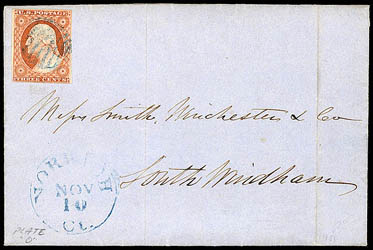 U.S. POSTAGE
THREE CENTS
Mess Smith, Winchester & Co
South Windham
NORWICH
NOV
10
Ct.
PLATE
"0"